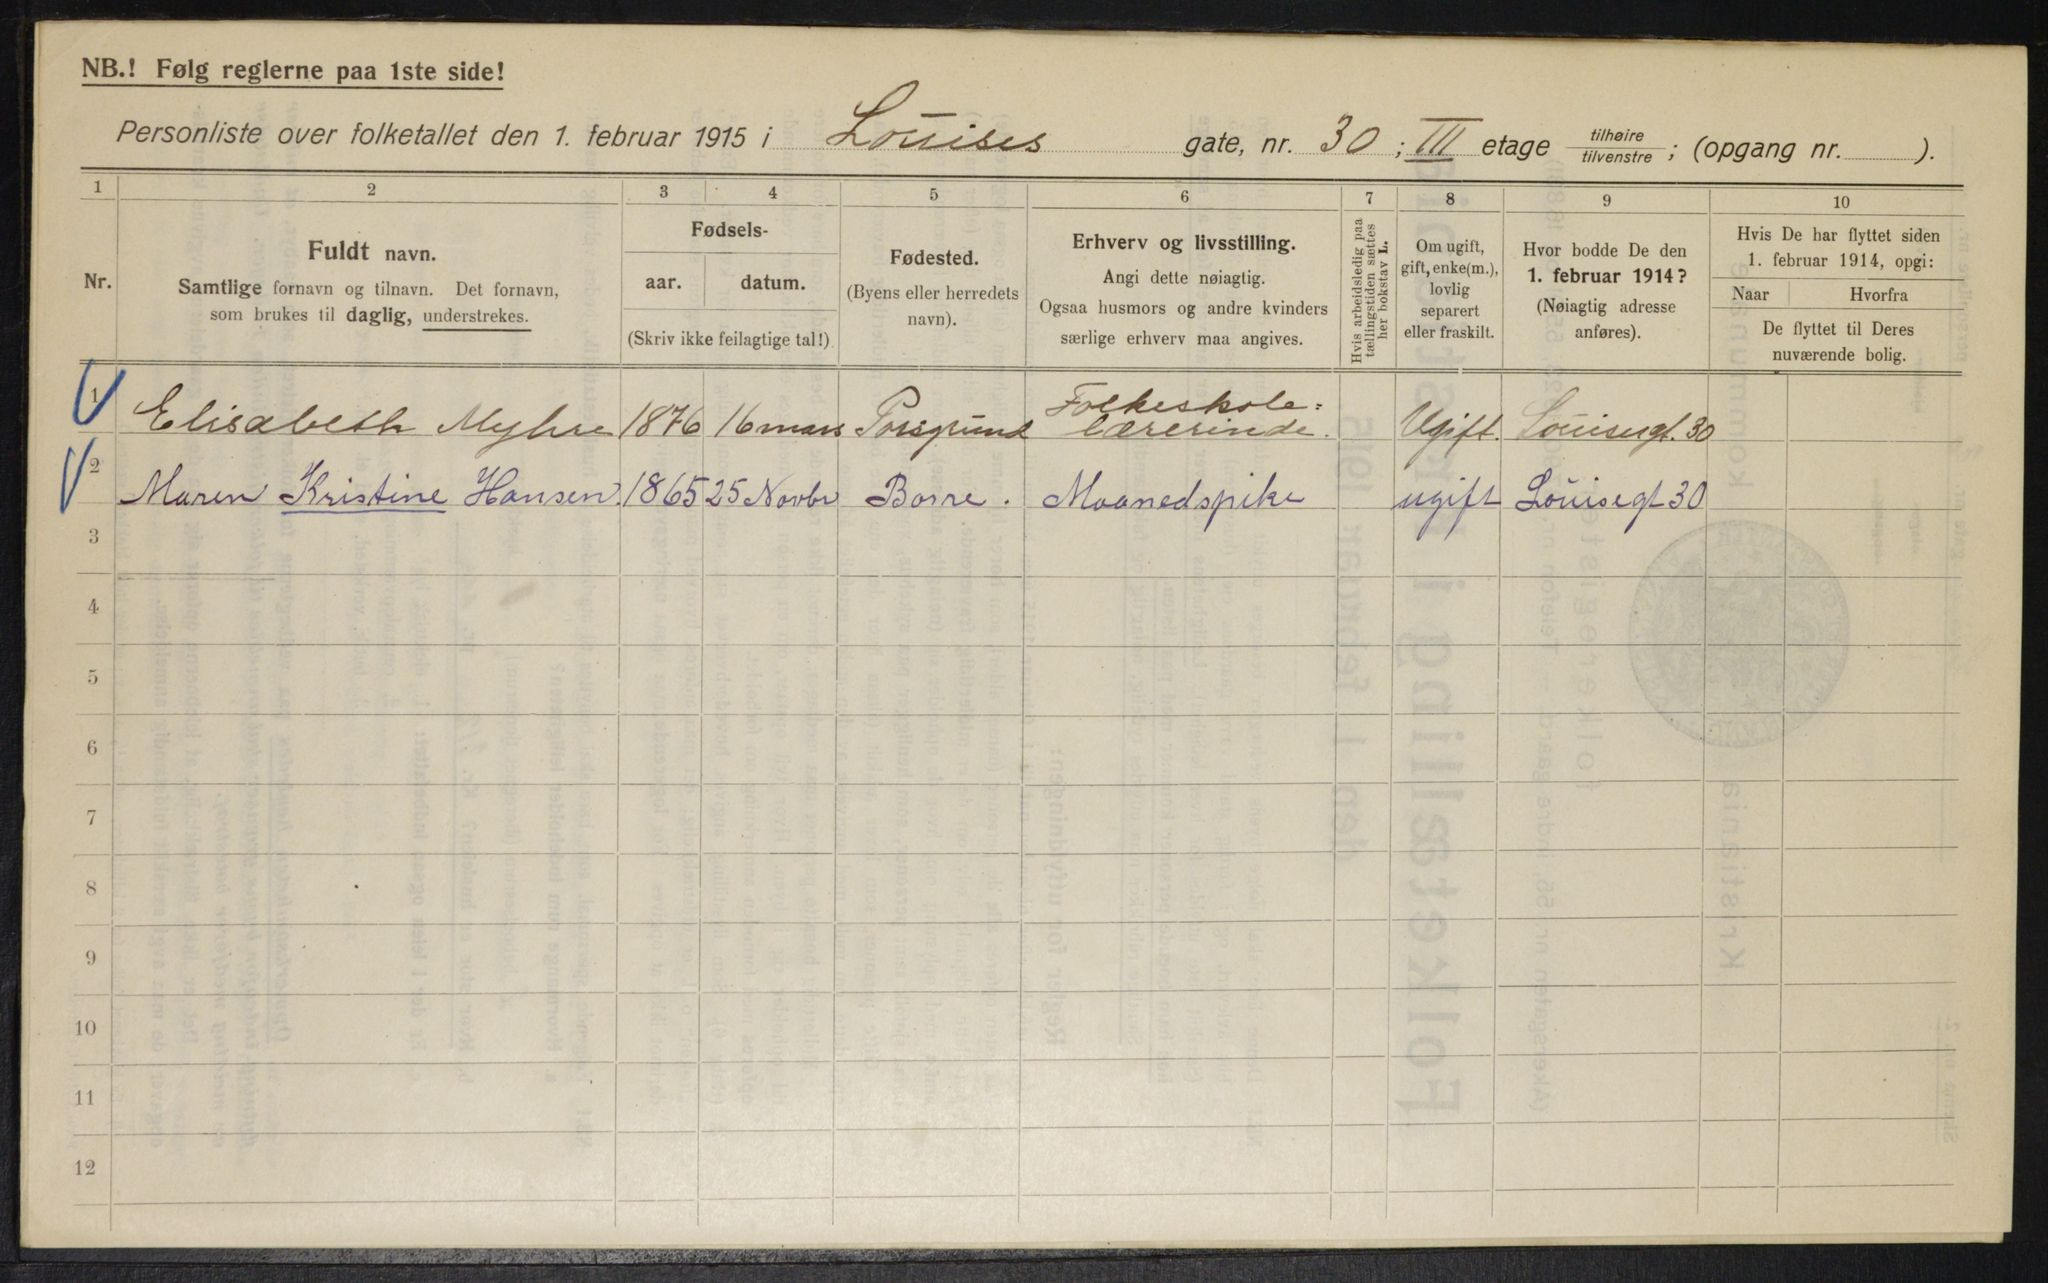 NB.! Følg reglerne paa 1ste side!
Personliste over folketallet den 1. februar 1915 i Louises gate, nr. 30 ; III etage tilhøire tilvenstre ; (opgang nr. ).
1 2 3 4 5 6 7 8 9 10
Nr.
Fuldt navn.
Samtlige fornavn og tilnavn. Det fornavn,
som brukes til daglig, understrekes.
Fødsels-
aar. datum.
(Skriv ikke feilagtige tal!)
Fødested.
(Byens eller herredets
navn).
Erhverv og livsstilling.
Angi dette nøiagtig.
Ogsaa husmors og andre kvinders
særlige erhverv maa angives.
Hvis arbeidsledig paa
tællingstiden sættes
her bokstav L.
Om ugift,
gift, enke(m.),
lovlig
separert
eller fraskilt.
Hvor bodde De den
1. februar 1914?
(Nøiagtig adresse
anføres).
Hvis De har flyttet siden
1. februar 1914, opgi:
Naar Hvorfra
De flyttet til Deres
nuværende bolig.
1 Elisabeth Myhre 1876 16 mars Porsgrund Folkeskole=
lærerinde. Ugift. Louisesgt. 30
2 Maren Kristine Hansen. 1865 25 Novbr Borre. Maanedspike ugift Louisegt 30
3
4
5
6
7
8
9
10
11
12